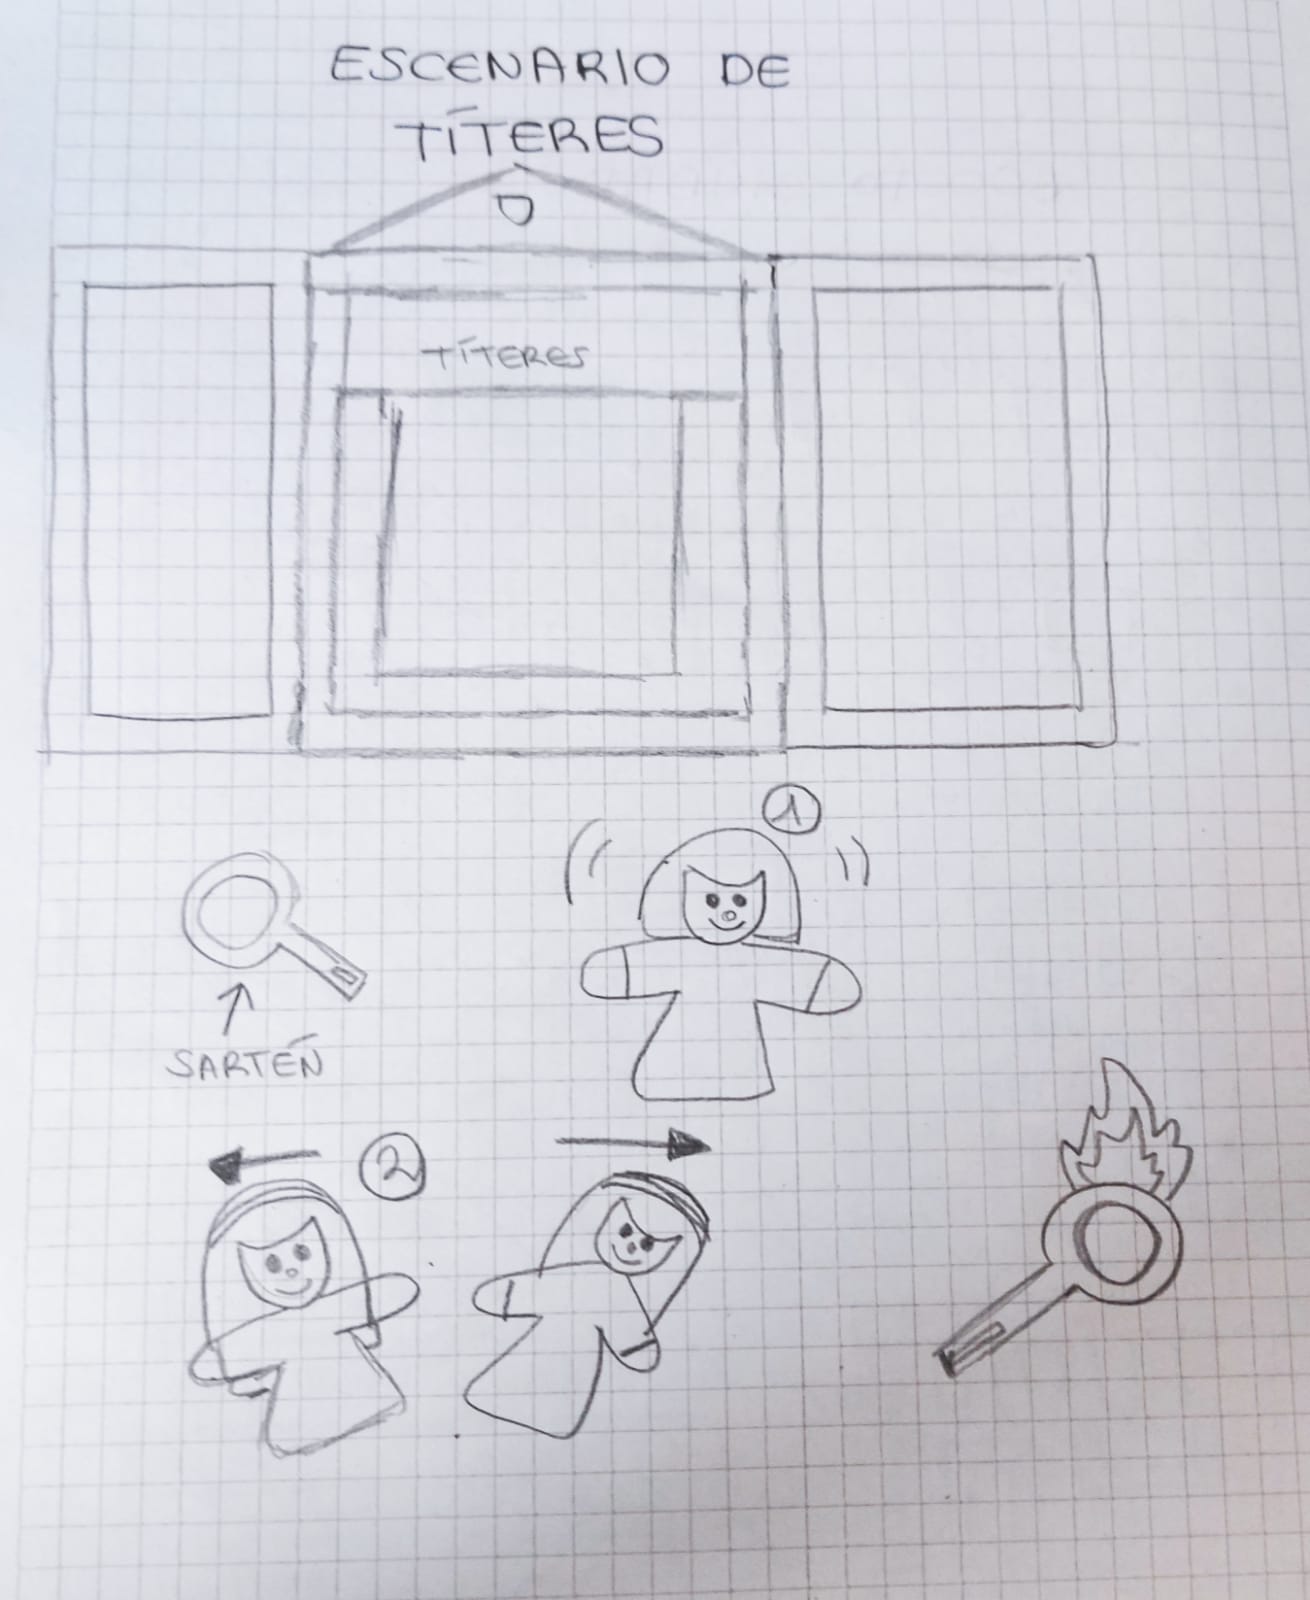 ESCENARIO DE
TÍTERES
TÍTERES
1
SARTÉN
2